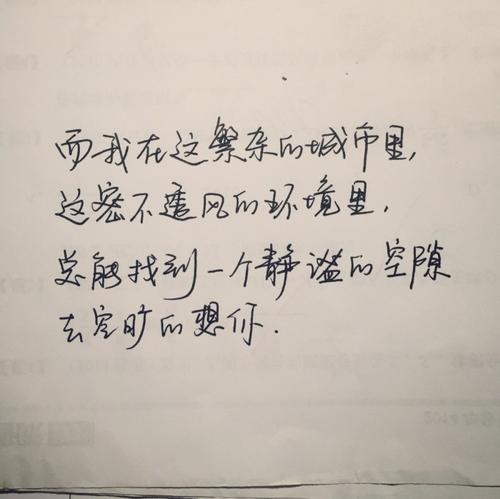 而我在这繁杂的城市里,
这密不透风的环境里,
总能找到一个静谧的空隙
去空旷的想你.